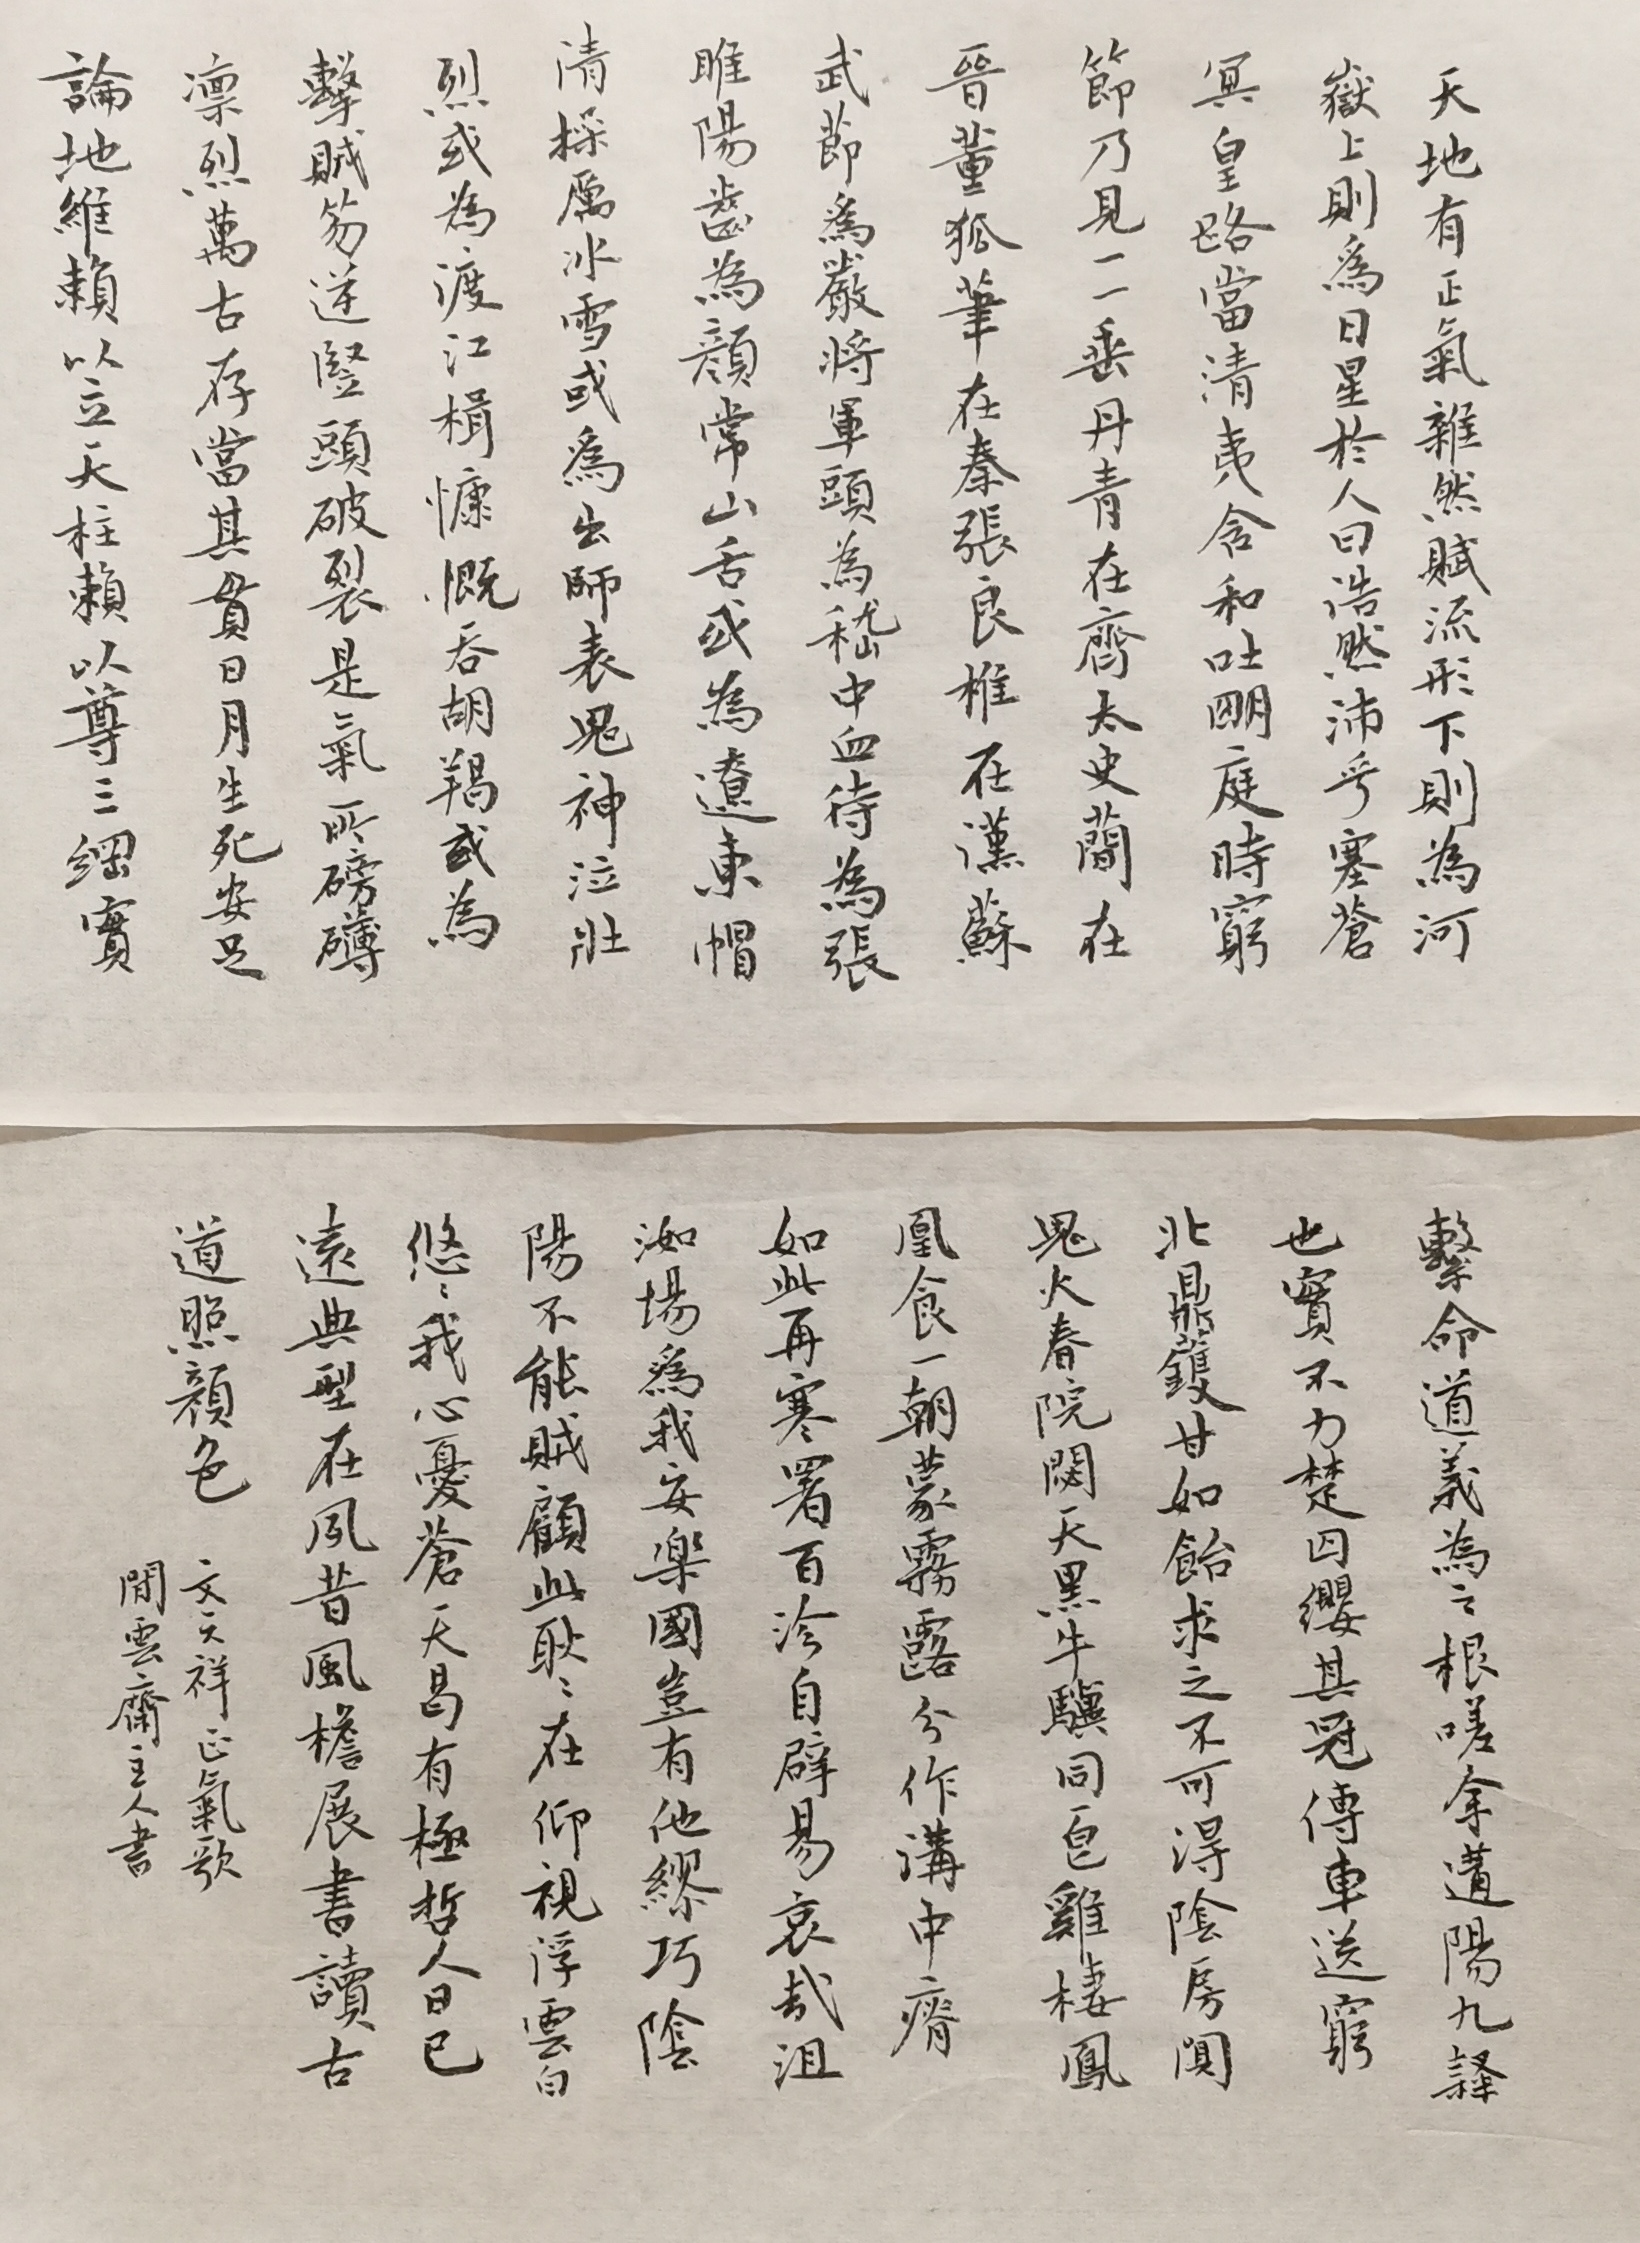 天地有正氣雜然賦流形下則為河
嶽上則為日星於人曰浩然沛乎塞蒼
冥皇路當清夷含和吐明庭時窮
節乃見一一垂丹青在齊太史蘭在
晉董狐筆在秦張良椎在漢蘇
武節為嚴將軍頭為嵇中血侍為張
睢陽齒為顏常山舌或為遼東帽
清操厲冰雪或為出師表鬼神泣壯
烈或為渡江楫慷慨吞胡羯或為
擊賊笏逆豎頭破裂是氣所磅礴
凛烈萬古存當其貫日月生死安足
論地維賴以立天柱賴以尊三綱實
繫命道義為之根嗟余遘陽九隸
也實不力楚囚纓其冠傳車送窮
北鼎鑊甘如飴求之不可得陰房闃
鬼火春院閟天黑牛驥同皂雞棲鳳
凰食一朝蒙霧露分作溝中瘠
如此再寒署百沴自辟易哀哉沮
洳場為我安樂國豈有他繆巧陰
陽不能賊顧此耿〻在仰視浮雲白
悠〻我心憂蒼天曷有極哲人日已
遠典型在夙昔風檐展書讀古
道照顏色
文天祥正氣歌
閒雲齋主人書